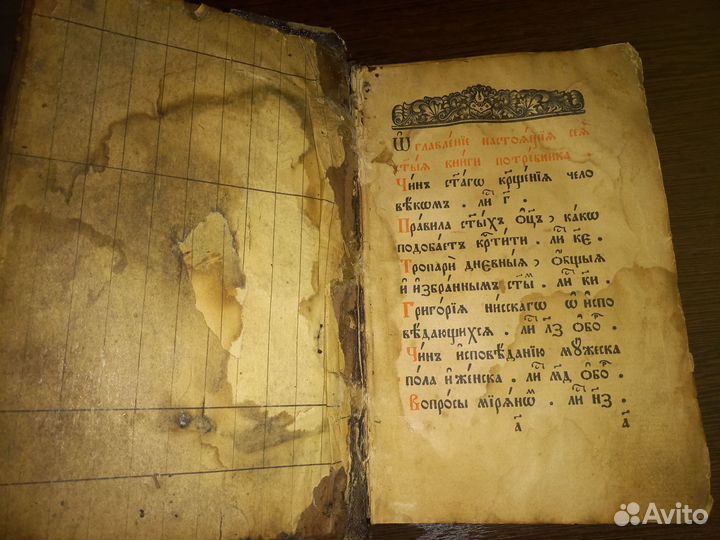 Ѡглавленіе настоѧщіѧ сеѧ
ст҃ыѧ книги потребника .
Чинъ ст҃агѡ крⷭ҇щеніѧ чело
вѣкѡмъ . лиⷭ҇ г҃ .
Правила ст҃ыхъ ѻ҆ц҃ъ , какѡ
подобаетъ крⷭ҇тити . лиⷭ҇ к҃е .
Тропари дневныѧ , ѻ҆бщыѧ
и҆ и҆збраннымъ ст҃ыⷨ . лиⷭ҇ к҃и .
Григоріѧ нисскагѡ ѡ҆ и҆спо
вѣдающихсѧ . лиⷭ҇ л҃з ѻ҆боⷬ҇ .
Чинъ и҆сповѣданію мꙋжеска
пола и҆ женска . лиⷭ҇ м҃д ѻ҆боⷬ҇ .
Вопросы мірѧнѡⷨ . лиⷭ҇ н҃з .
а҃ а҃
Avito